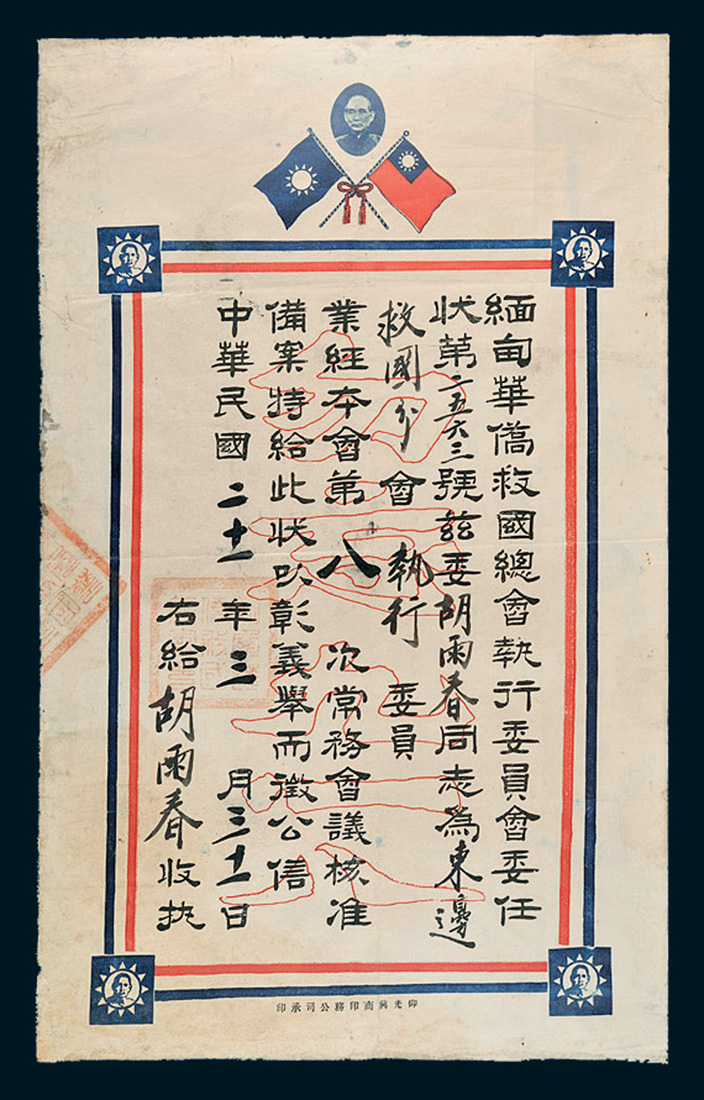 緬甸華僑救國總會執行委員會委任
狀第二五六三號茲委胡雨春同志為東邊
救國分會執行委員
業經本會第八次常務會議核准
備案特給此狀以彰義舉而徵公信
中華民國二十一年三月三十一日
右給胡雨春收执
仰光興商印務公司承印